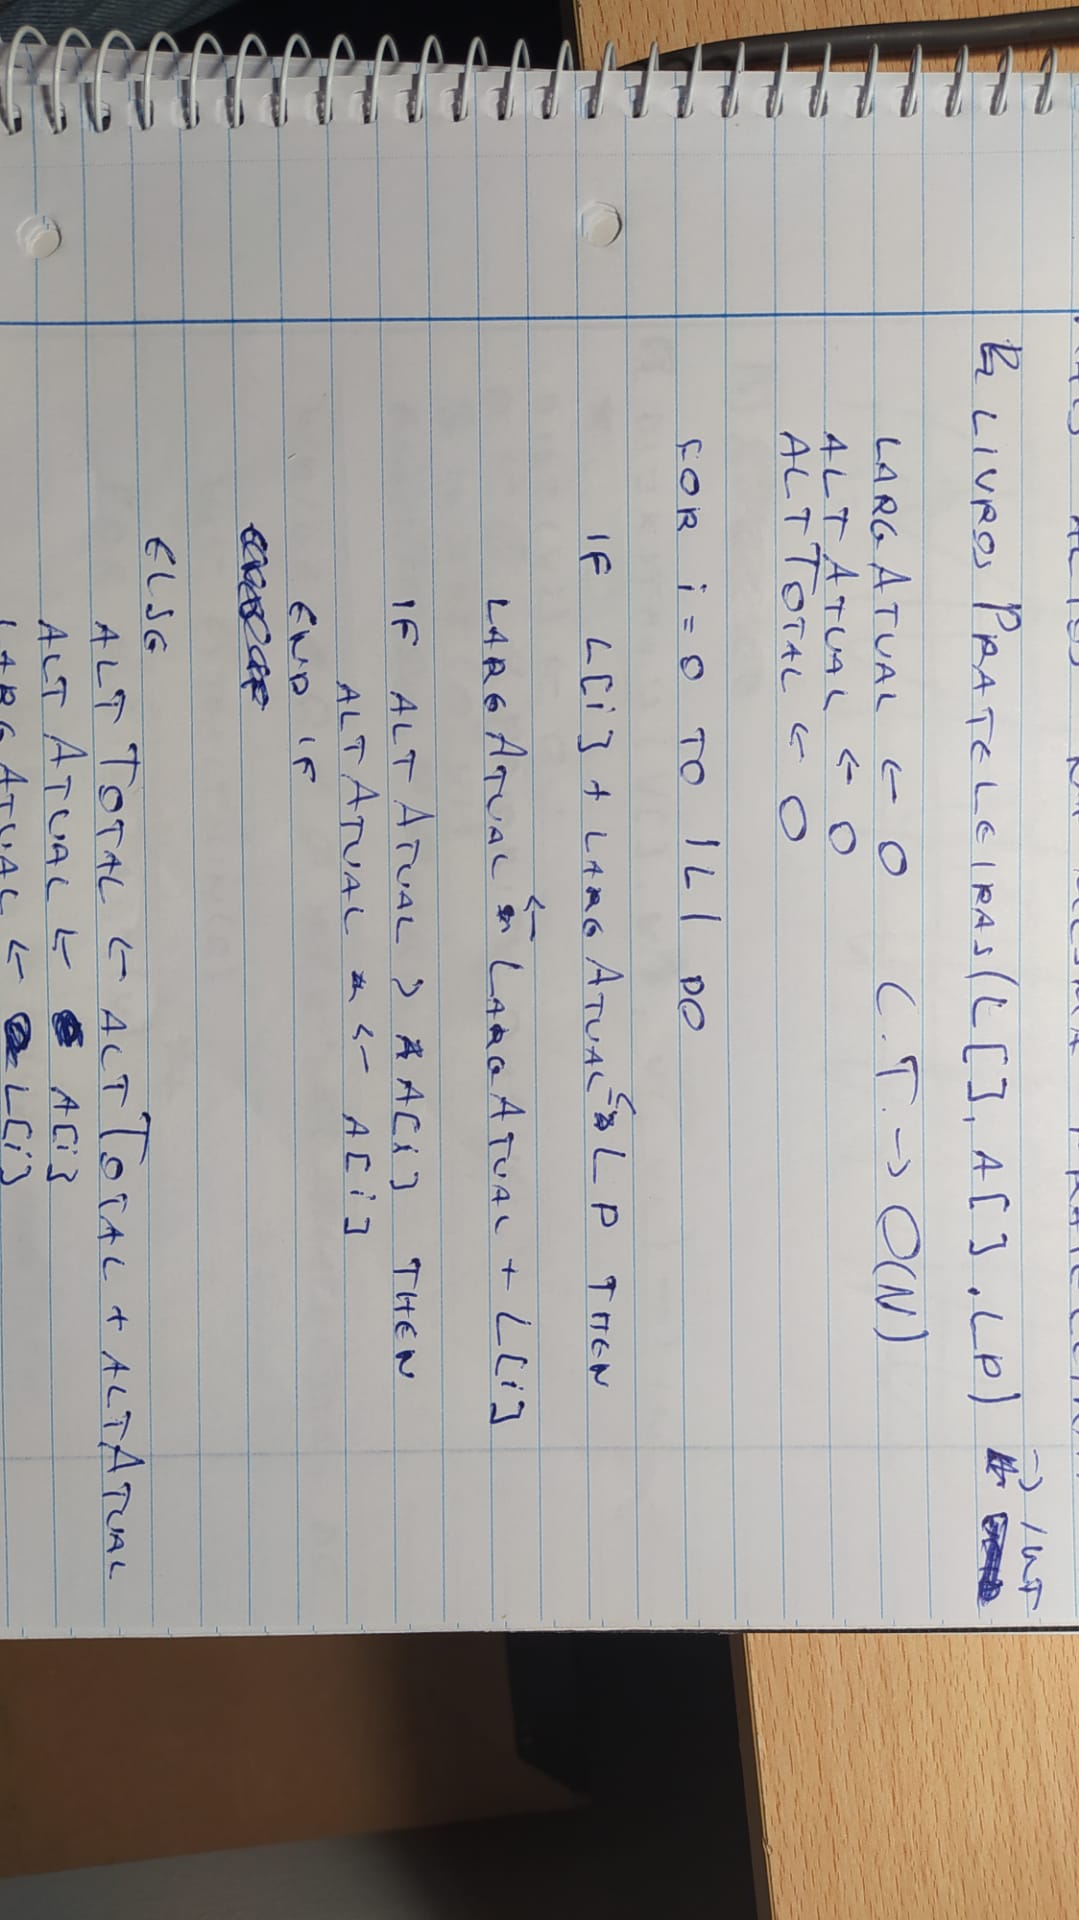 MAIS ALTOS NA MESMA PRATELEIRA
LIVROS PRATELEIRAS(L[], A[], LP) -> INT
LARGATUAL ← 0 C.T. -> O(N)
ALTATUAL ← 0
ALTTOTAL ← 0
FOR i = 0 TO |L| DO
IF L[i] + LARGATUAL <= LP THEN
LARGATUAL ← LARGATUAL + L[i]
IF ALTATUAL > A[i] THEN
ALTATUAL ← A[i]
END IF
ELSE
ALTTOTAL ← ALTTOTAL + ALTATUAL
ALTATUAL ← A[i]
LARGATUAL ← L[i]